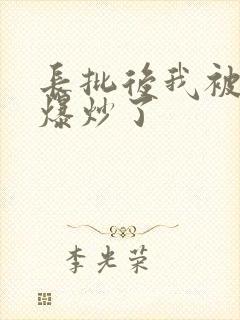 長批後我被
爆炒了
李光荣